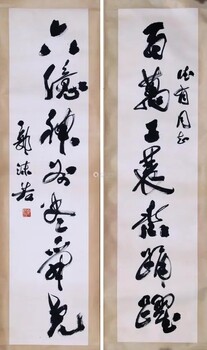 百萬工農齊踴躍
同志
六億神州盡舜堯
郭沫若